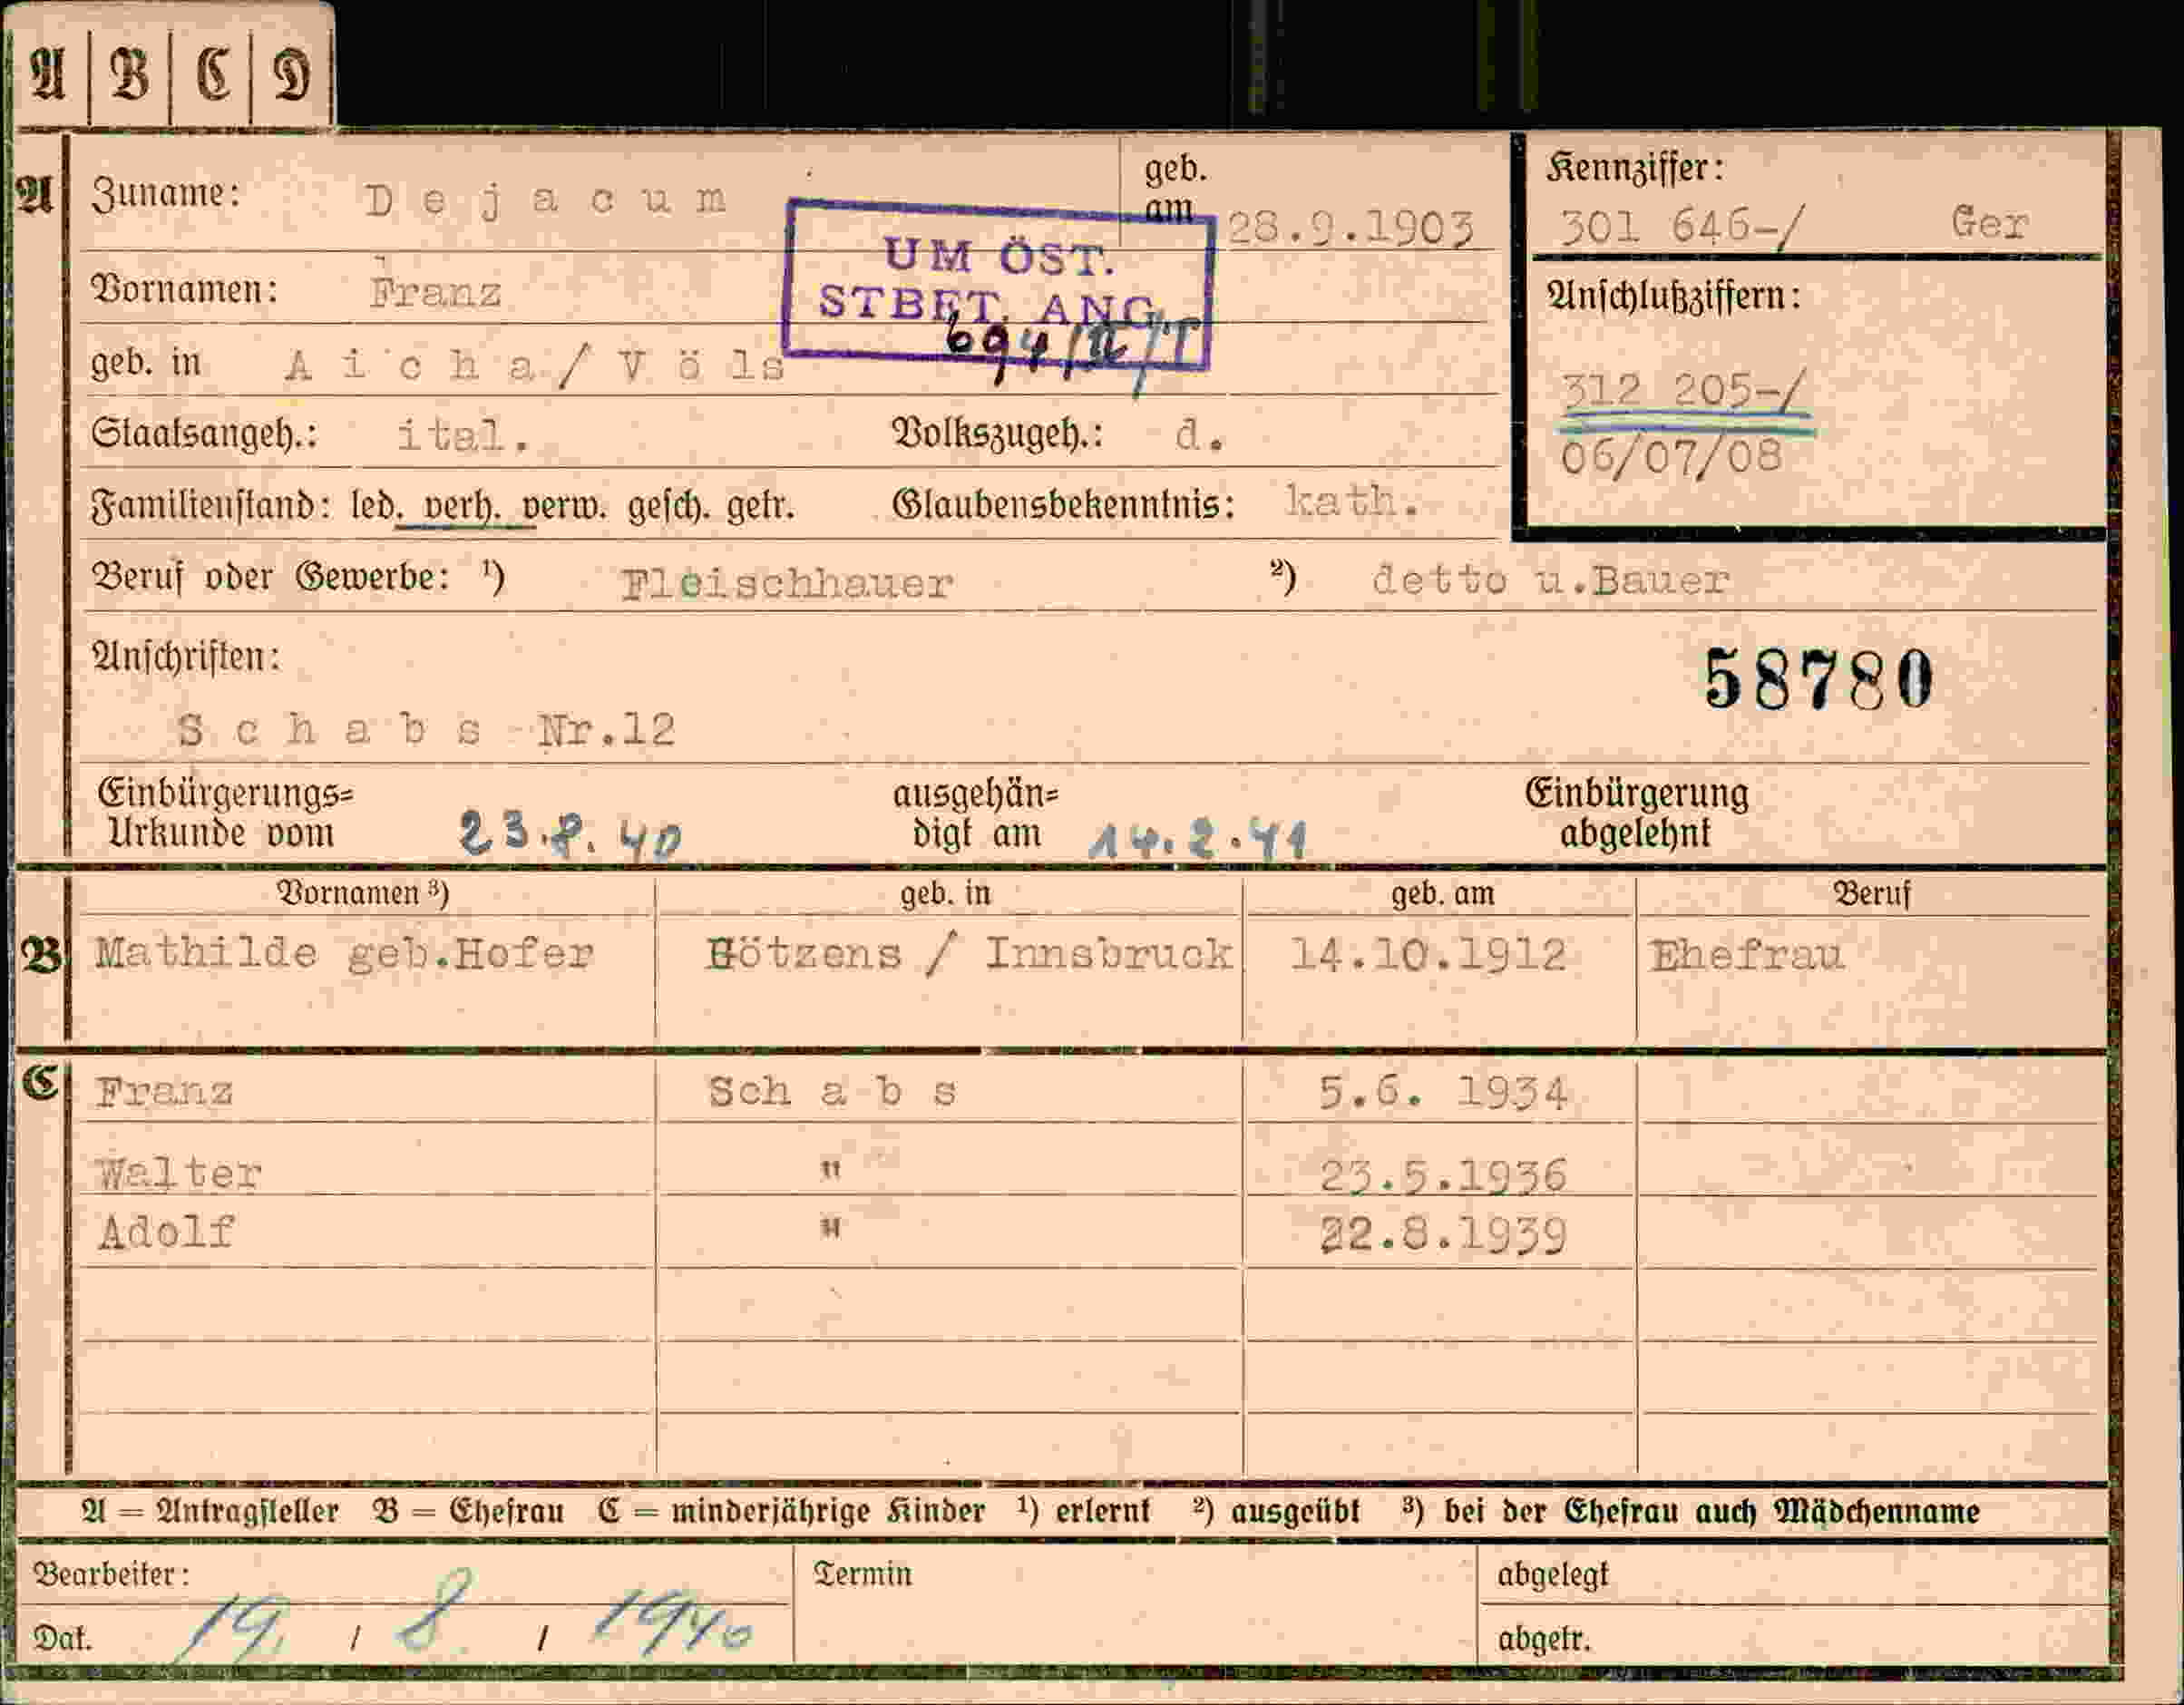 A B C D
A Zuname: Dejacum geb. am 28.9.1903
Kennziffer:
301 646-/ Ger
UM ÖST.
STBET. ANG.
Vornamen: Franz
Anschlußziffern:
geb. in Aicha/Völs
312 205-/
Staatsangeh.: ital. Volkszugeh.: d.
06/07/08
Familienstand: led. verh. verw. gesch. getr. Glaubensbekenntnis: kath.
Beruf oder Gewerbe: ¹) Fleischhauer ²) detto u.Bauer
Anschriften:
58780
Schabs Nr.12
Einbürgerungs= Urkunde vom 23.8.40 ausgehän= digt am 14.2.41 Einbürgerung abgelehnt
Vornamen ³) geb. in geb. am Beruf
B Mathilde geb.Hofer Götzens / Innsbruck 14.10.1912 Ehefrau
C Franz Schabs 5.6. 1934
Walter " 23.5.1936
Adolf " 22.8.1939
A = Antragsteller B = Ehefrau C = minderjährige Kinder ¹) erlernt ²) ausgeübt ³) bei der Ehefrau auch Mädchenname
Bearbeiter: Termin abgelegt
Dat. 19. / 8 / 1940 abgetr.